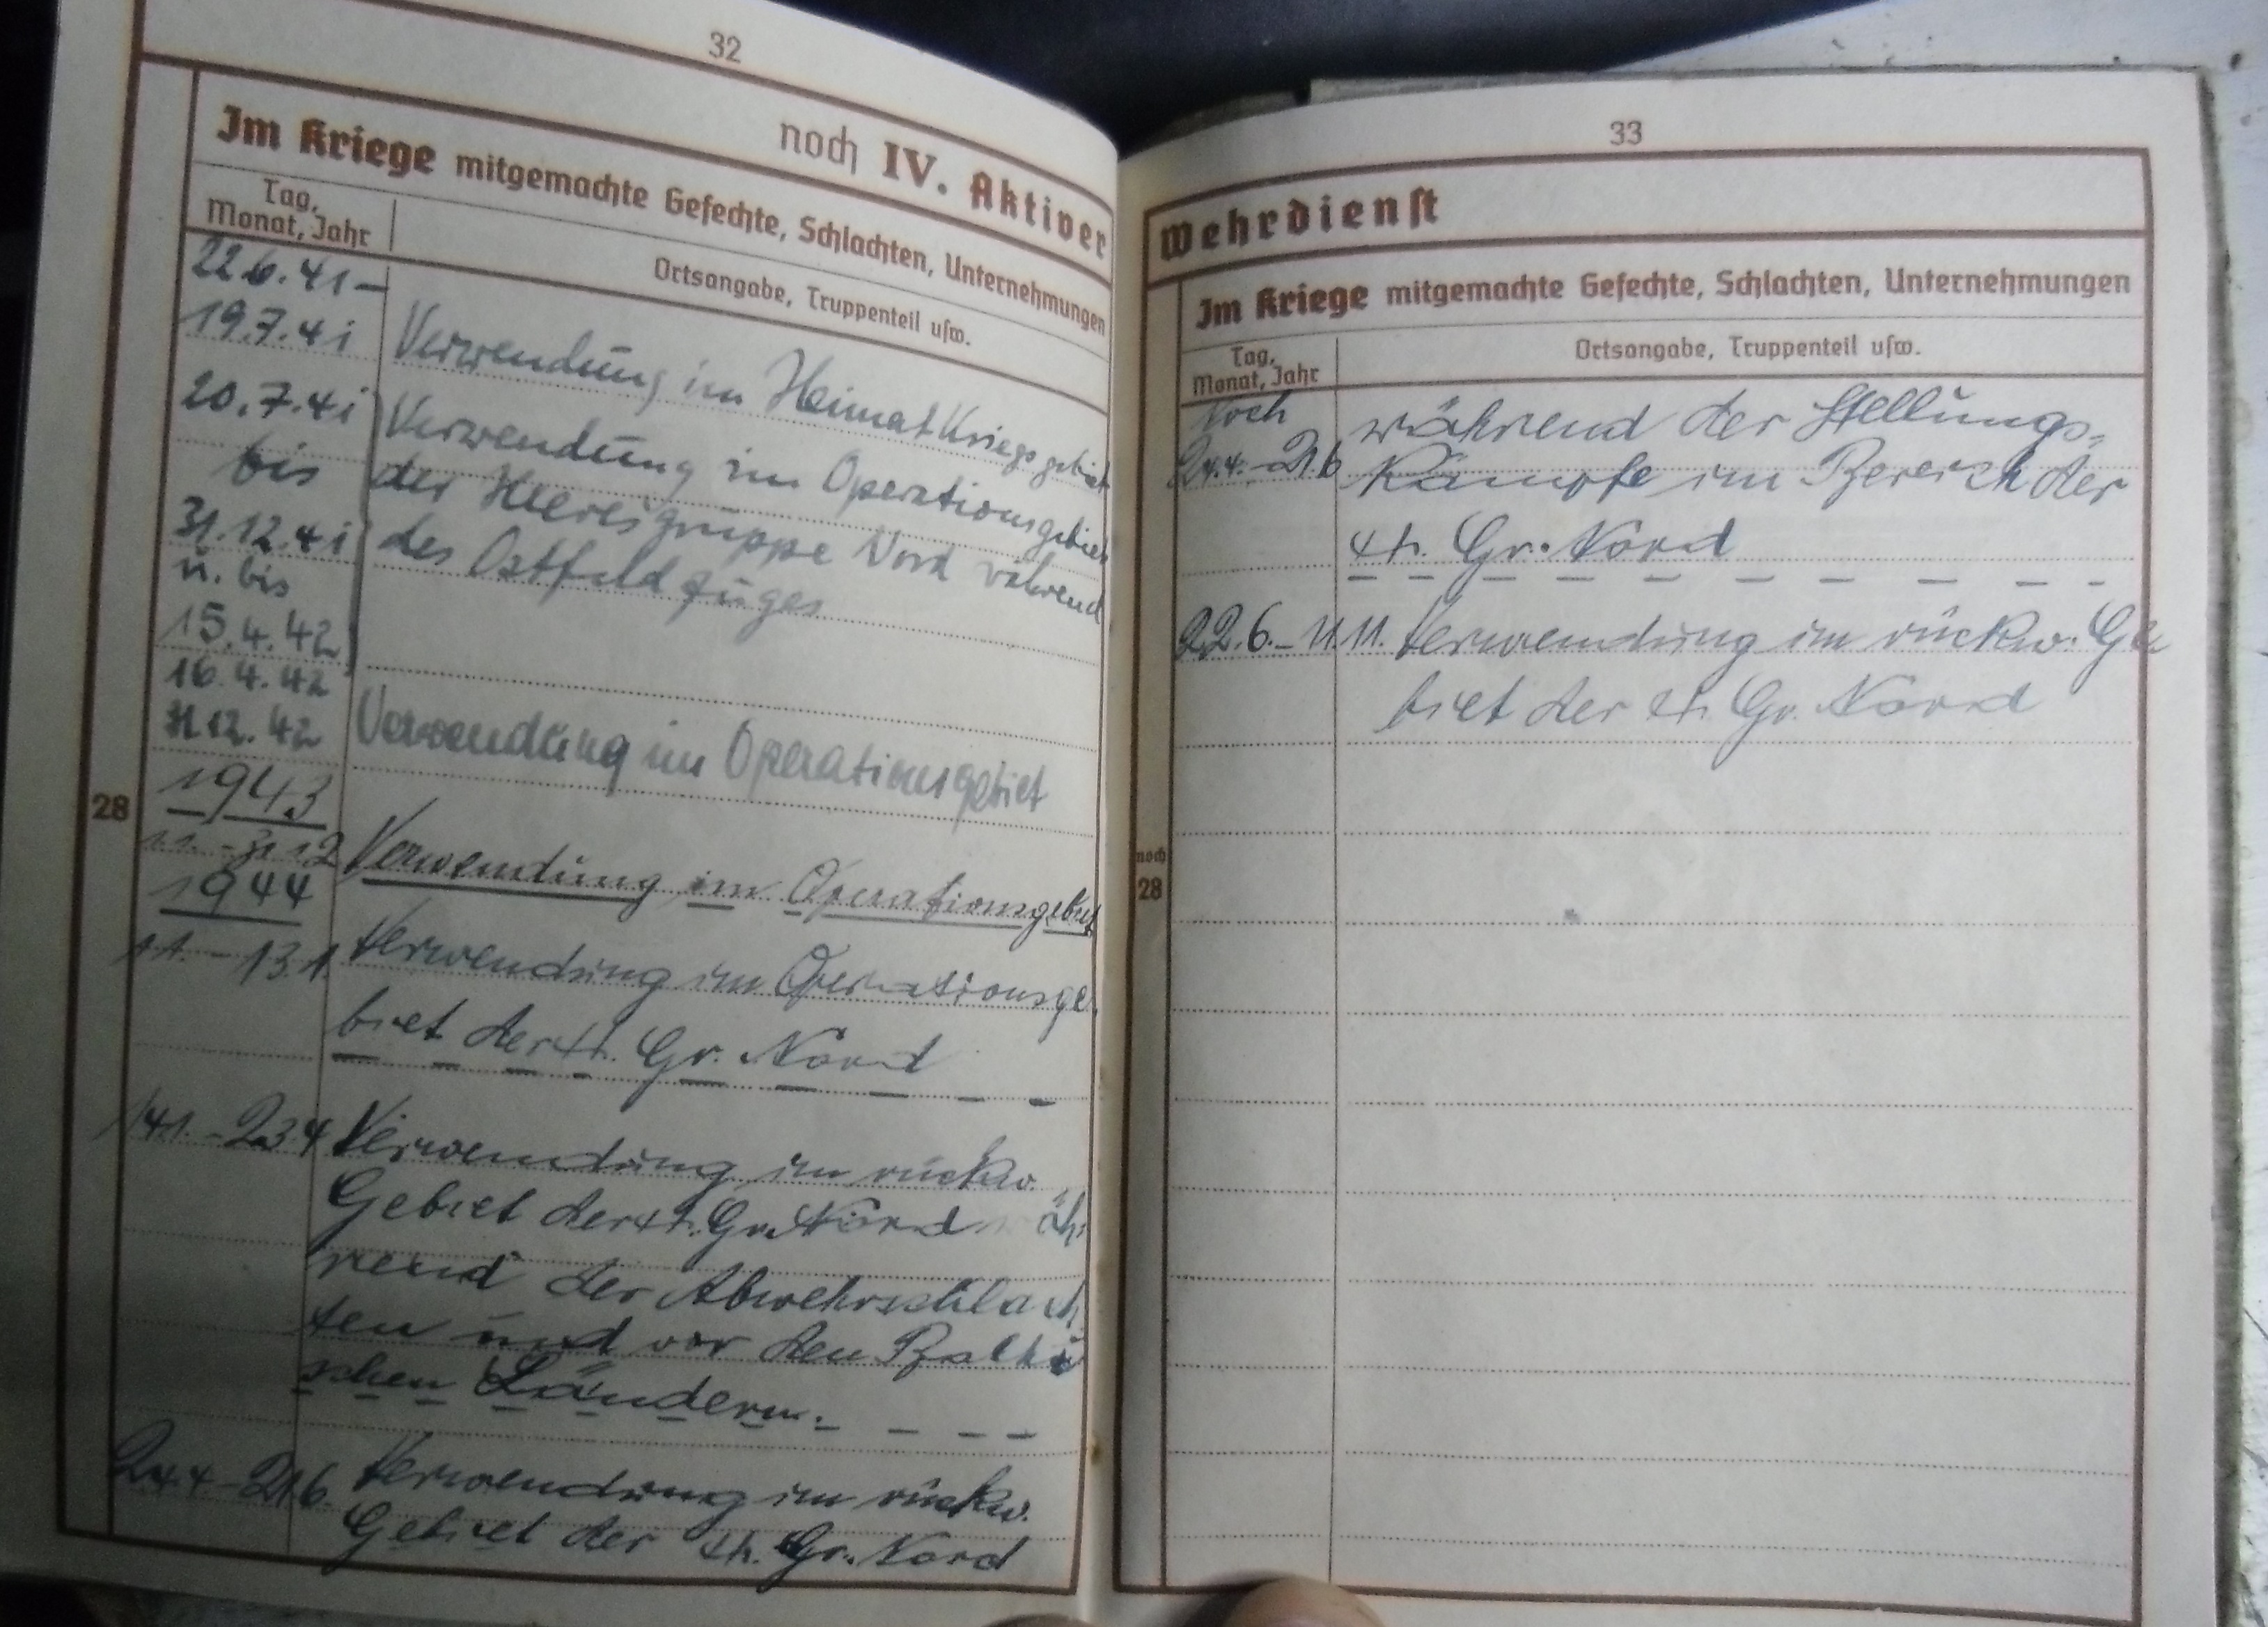 32
noch IV. Aktiver
Im Kriege mitgemachte Gefechte, Schlachten, Unternehmungen
Tag,
Monat, Jahr
Ortsangabe, Truppenteil usw.
22.6.41-
19.7.41 Verwendung im Heimatkriegsgebiet
20.7.41 Verwendung im Operationsgebiet
bis der Heeresgruppe Nord während
31.12.41 des Ostfeldzuges
u. bis
15.4.42
16.4.42
31.12.42 Verwendung im Operationsgebiet
28
1943
1.1.-31.12 Verwendung im Operationsgebiet
1944
1.1.-13.1. Verwendung im Operationsge
biet der H. Gr. Nord
14.1.-23.4 Verwendung im rückw.
Gebiet der H. Gr. Nord wäh
rend der Abwehrschlach
ten und vor den Balti
schen Ländern.
24.4-21.6. Verwendung im rückw.
Gebiet der H. Gr. Nord
33
Wehrdienst
Im Kriege mitgemachte Gefechte, Schlachten, Unternehmungen
Tag,
Monat, Jahr
Ortsangabe, Truppenteil usw.
Noch während der Stellungs-
24.4.-21.6 Kämpfe im Bereich der
H. Gr. Nord
22.6.-11.11. Verwendung im rückw. Ge
biet der H. Gr. Nord
noch
28